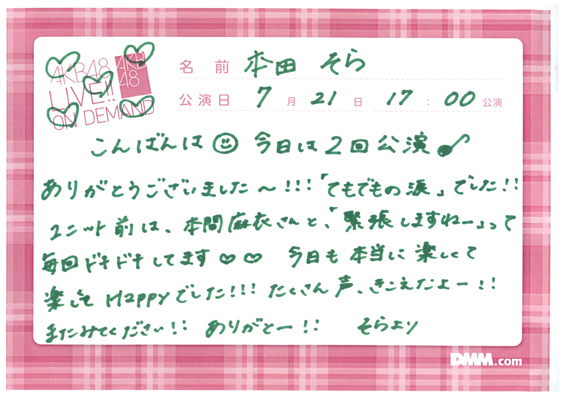 AKB48
LIVE!!
ON DEMAND
AKB
48
名前 本田 そら
公演日 7月 21日 17:00 公演
こんばんは 今日は2回公演
ありがとうございました〜!!!「てもでもの涙」でした!!
ユニット前は、本間麻衣さんと、「緊張しますねー」って
毎回ドキドキしてます♡♡ 今日も本当に楽しくて
楽しくて Happyでした!!! たくさん声、きこえたよー!!
またみてください!! ありがとー!! そらより
DMM.com